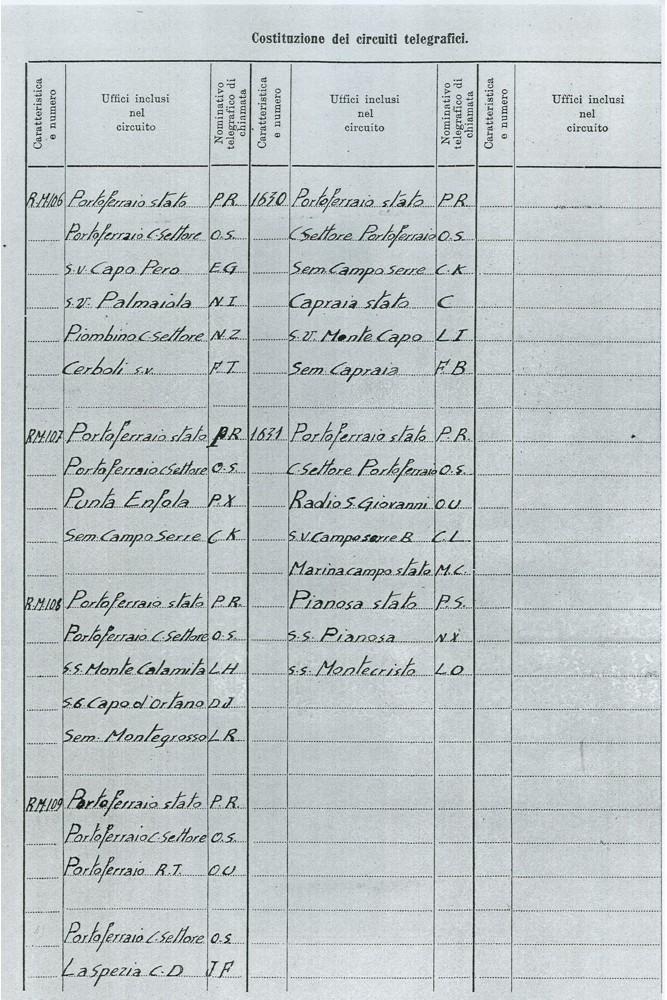 Costituzione dei circuiti telegrafici.
Caratteristica e numero
Uffici inclusi nel circuito
Nominativo telegrafico di chiamata
Caratteristica e numero
Uffici inclusi nel circuito
Nominativo telegrafico di chiamata
Caratteristica e numero
Uffici inclusi nel circuito
R.M.106 Portoferraio stato P.R. 1630 Portoferraio stato P.R.
Portoferraio C. Settore O.S. C. Settore Portoferraio O.S.
S.V. Capo Pero E.G Sem. Campo Serre C.K
S.V. Palmaiola N.I Capraia stato C
Piombino C. Settore N.Z S.V. Monte Capo L I
Cerboli s.v. F.T. Sem. Capraia F B
R.M.107 Portoferraio stato P.R. 1631 Portoferraio stato P.R.
Portoferraio C. Settore O.S. C. Settore Portoferraio O.S.
Punta Enfola P.X Radio S. Giovanni O U
Sem. Campo Serre C K S.V. Campo serre B. C L
Marina campo stato M.C.
R.M.108 Portoferraio stato P.R. Pianosa stato P.S.
Portoferraio C. Settore O.S. S.S. Pianosa N X
S.S. Monte Calamita L H S.S. Montecristo L O
Capo d'Ortano D J
Sem. Montegrosso L R
R.M.109 Portoferraio stato P.R.
Portoferraio C. Settore O.S.
Portoferraio R.T. O U
Portoferraio C. Settore O.S
La Spezia C. D J F